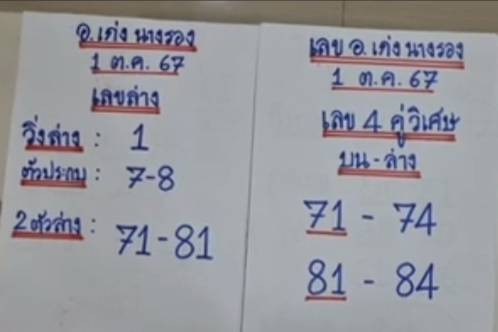 อ.เก่ง นางรอง
1 ต.ค. 67
เลขล่าง
วิ่งล่าง : 1
ตัวประกบ : 7-8
2 ตัวล่าง : 71-81
เลข อ.เก่ง นางรอง
1 ต.ค. 67
เลข 4 คู่วิเศษ
บน-ล่าง
71 - 74
81 - 84